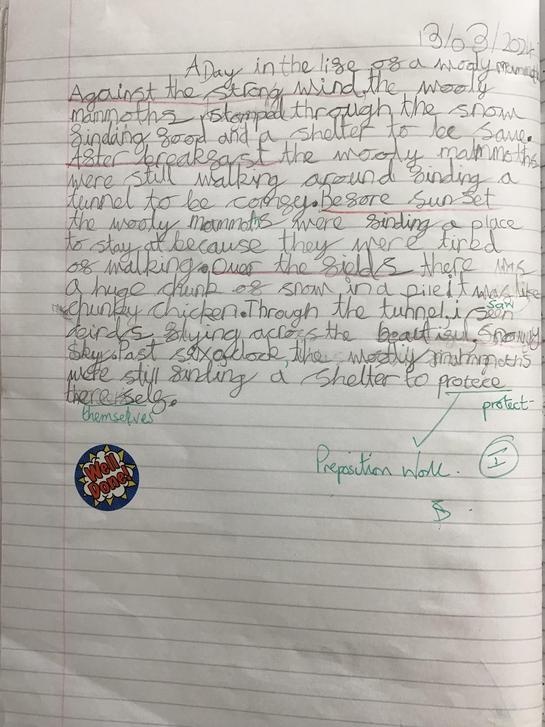 13/03/2024
A Day in the life of a wooly mammoth
Against the strong wind, the wooly
mammoths stomped through the snow
finding food and a shelter to be save.
After breakfast the wooly mammoths
were still walking around finding a
tunnel to be comfey. Before sunset
the wooly mammoths were finding a place
to stay at because they were tired
of walking. Over the fields there was
a huge chunk of snow in a pile it was like
saw
chunky chicken. Through the tunnel i seen
birds flying across the beautiful snowy
sky. Past six o,clock, the woolly mammoths
were still finding a shelter to protece
protect
thereself.
themselves
Well
Done!
Preposition Work. I